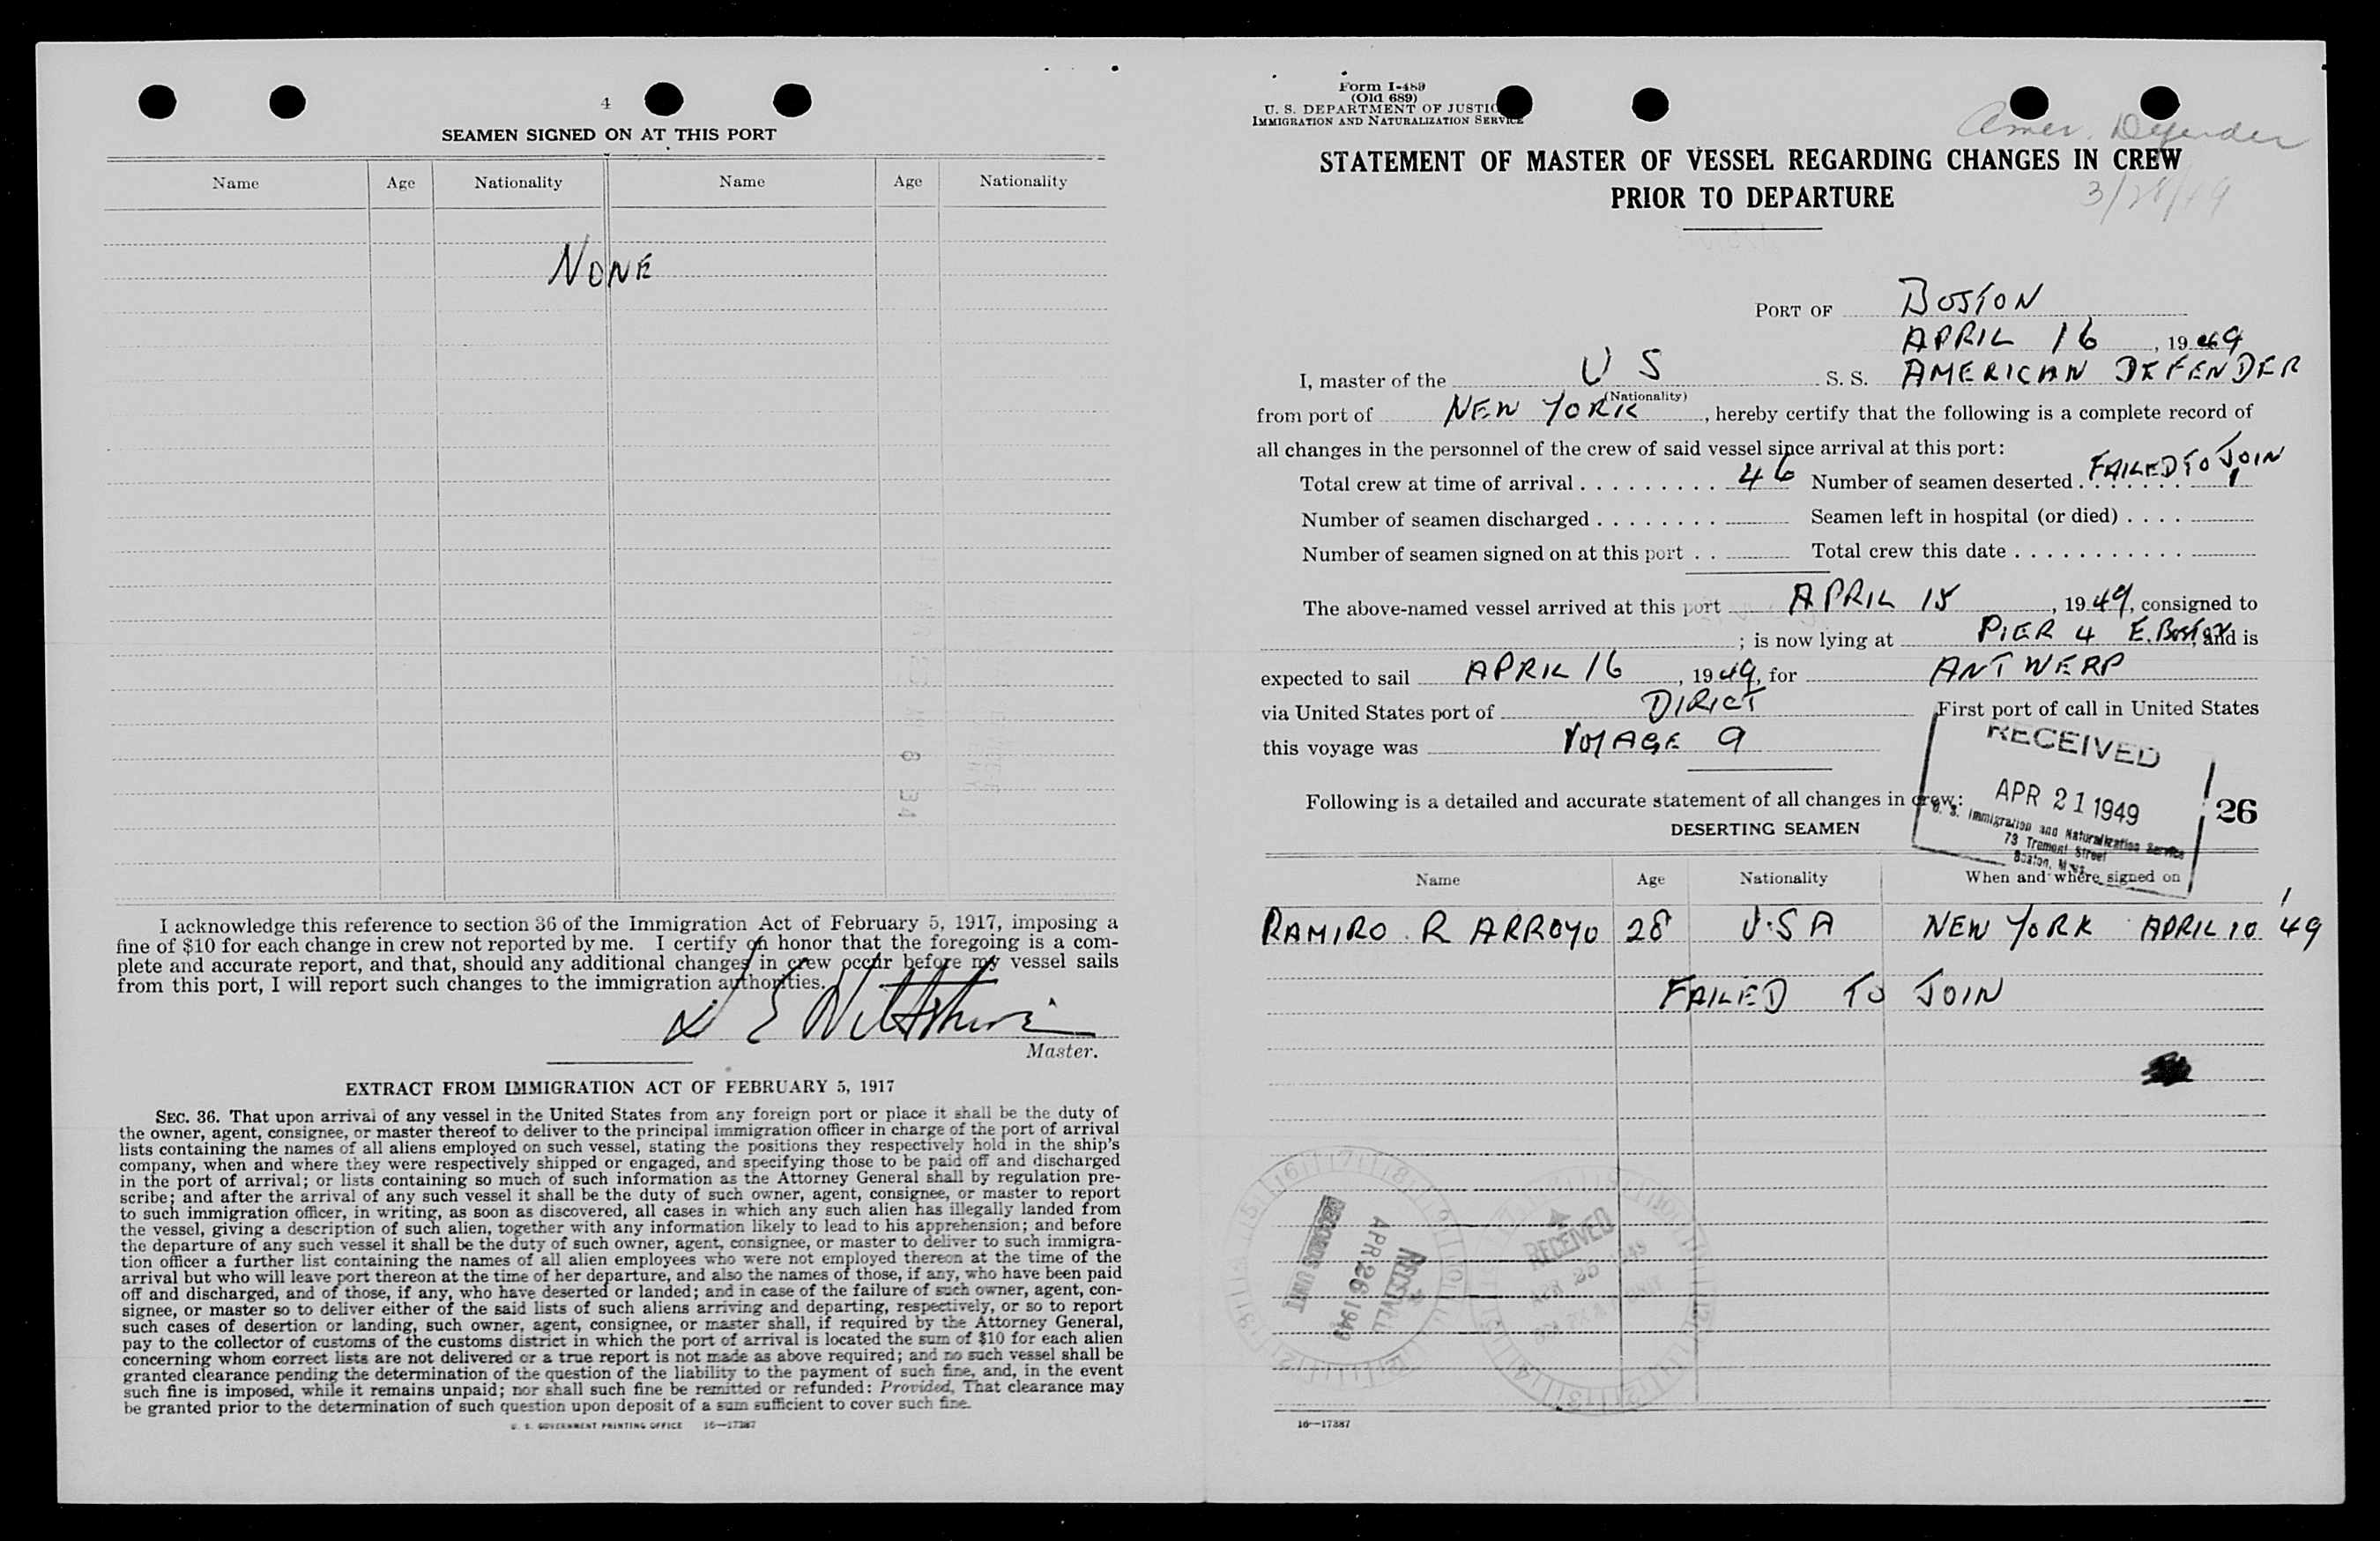 4
SEAMEN SIGNED ON AT THIS PORT
Name Age Nationality Name Age Nationality
NONE
I acknowledge this reference to section 36 of the Immigration Act of February 5, 1917, imposing a
fine of $10 for each change in crew not reported by me. I certify on honor that the foregoing is a com-
plete and accurate report, and that, should any additional changes in crew occur before my vessel sails
from this port, I will report such changes to the immigration authorities.
Master.
EXTRACT FROM IMMIGRATION ACT OF FEBRUARY 5, 1917
SEC. 36. That upon arrival of any vessel in the United States from any foreign port or place it shall be the duty of
the owner, agent, consignee, or master thereof to deliver to the principal immigration officer in charge of the port of arrival
lists containing the names of all aliens employed on such vessel, stating the positions they respectively hold in the ship's
company, when and where they were respectively shipped or engaged, and specifying those to be paid off and discharged
in the port of arrival; or lists containing so much of such information as the Attorney General shall by regulation pre-
scribe; and after the arrival of any such vessel it shall be the duty of such owner, agent, consignee, or master to report
to such immigration officer, in writing, as soon as discovered, all cases in which any such alien has illegally landed from
the vessel, giving a description of such alien, together with any information likely to lead to his apprehension; and before
the departure of any such vessel it shall be the duty of such owner, agent, consignee, or master to deliver to such immigra-
tion officer a further list containing the names of all alien employees who were not employed thereon at the time of the
arrival but who will leave port thereon at the time of her departure, and also the names of those, if any, who have been paid
off and discharged, and of those, if any, who have deserted or landed; and in case of the failure of such owner, agent, con-
signee, or master so to deliver either of the said lists of such aliens arriving and departing, respectively, or so to report
such cases of desertion or landing, such owner, agent, consignee, or master shall, if required by the Attorney General,
pay to the collector of customs of the customs district in which the port of arrival is located the sum of $10 for each alien
concerning whom correct lists are not delivered or a true report is not made as above required; and no such vessel shall be
granted clearance pending the determination of the question of the liability to the payment of such fine, and, in the event
such fine is imposed, while it remains unpaid; nor shall such fine be remitted or refunded: Provided, That clearance may
be granted prior to the determination of such question upon deposit of a sum sufficient to cover such fine.
U. S. GOVERNMENT PRINTING OFFICE 16—17387
Form I-489
(Old 689)
U. S. DEPARTMENT OF JUSTIC
IMMIGRATION AND NATURALIZATION SERVICE
Amer. Defender
STATEMENT OF MASTER OF VESSEL REGARDING CHANGES IN CREW
PRIOR TO DEPARTURE
PORT OF BOSTON
APRIL 16, 1949
I, master of the U S S. S. AMERICAN DEFENDER
(Nationality)
from port of NEW YORK, hereby certify that the following is a complete record of
all changes in the personnel of the crew of said vessel since arrival at this port:
FAILED TO JOIN
Total crew at time of arrival . . . . . . . . . 46 Number of seamen deserted . . . . . . . 1
Number of seamen discharged . . . . . . . . Seamen left in hospital (or died) . . . .
Number of seamen signed on at this port . . Total crew this date . . . . . . . . . . .
The above-named vessel arrived at this port APRIL 15, 1949, consigned to
; is now lying at PIER 4 E. Boston, and is
expected to sail APRIL 16, 1949, for ANTWERP
via United States port of DIRICT First port of call in United States
this voyage was VOYAGE 9
RECEIVED
APR 21 1949
U. S. Immigration and Naturalization Service
73 Tremont Street
Boston, Mass.
Following is a detailed and accurate statement of all changes in crew:
26
DESERTING SEAMEN
Name Age Nationality When and where signed on
RAMIRO R ARROYO 28 U.S A NEW YORK APRIL 10 '49
FAILED TO JOIN
RECEIVED
APR 26 1949
RECORDS UNIT
RECEIVED
16—17387